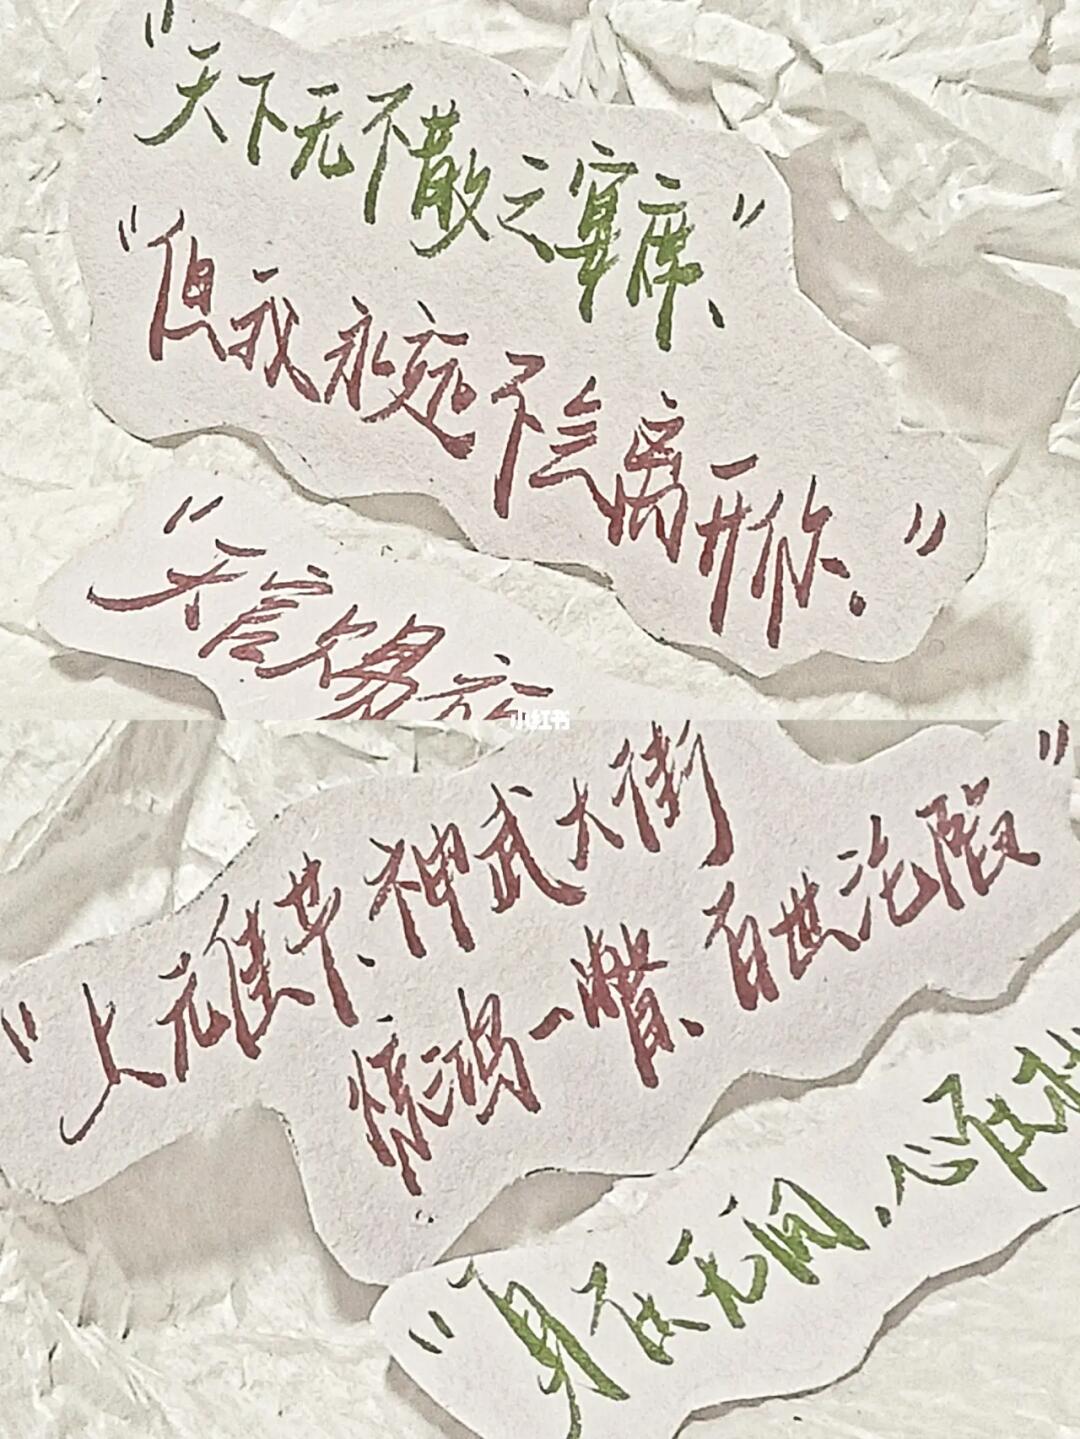 "天下无不散之宴席、"
"但我永远不会离开你."
"天官赐
小红书
"上元佳节、神武大街
惊鸿一瞥、百世沦陷"
"身在无间.心在